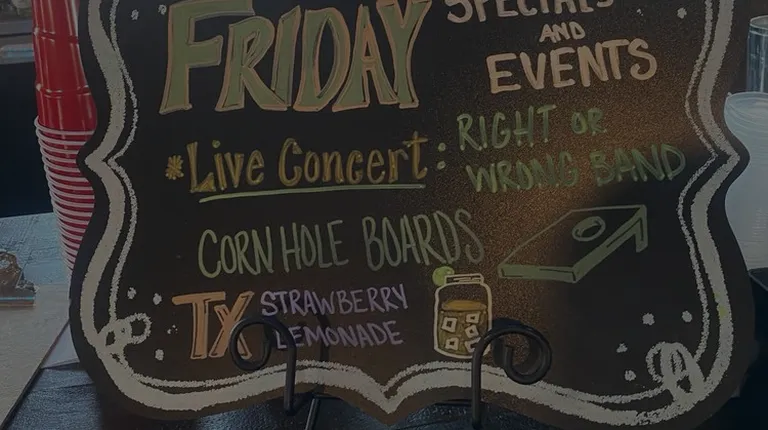 FRIDAY
SPECIALS
AND
EVENTS
*Live Concert:
RIGHT OR
WRONG BAND
CORN HOLE BOARDS
TX
STRAWBERRY
LEMONADE